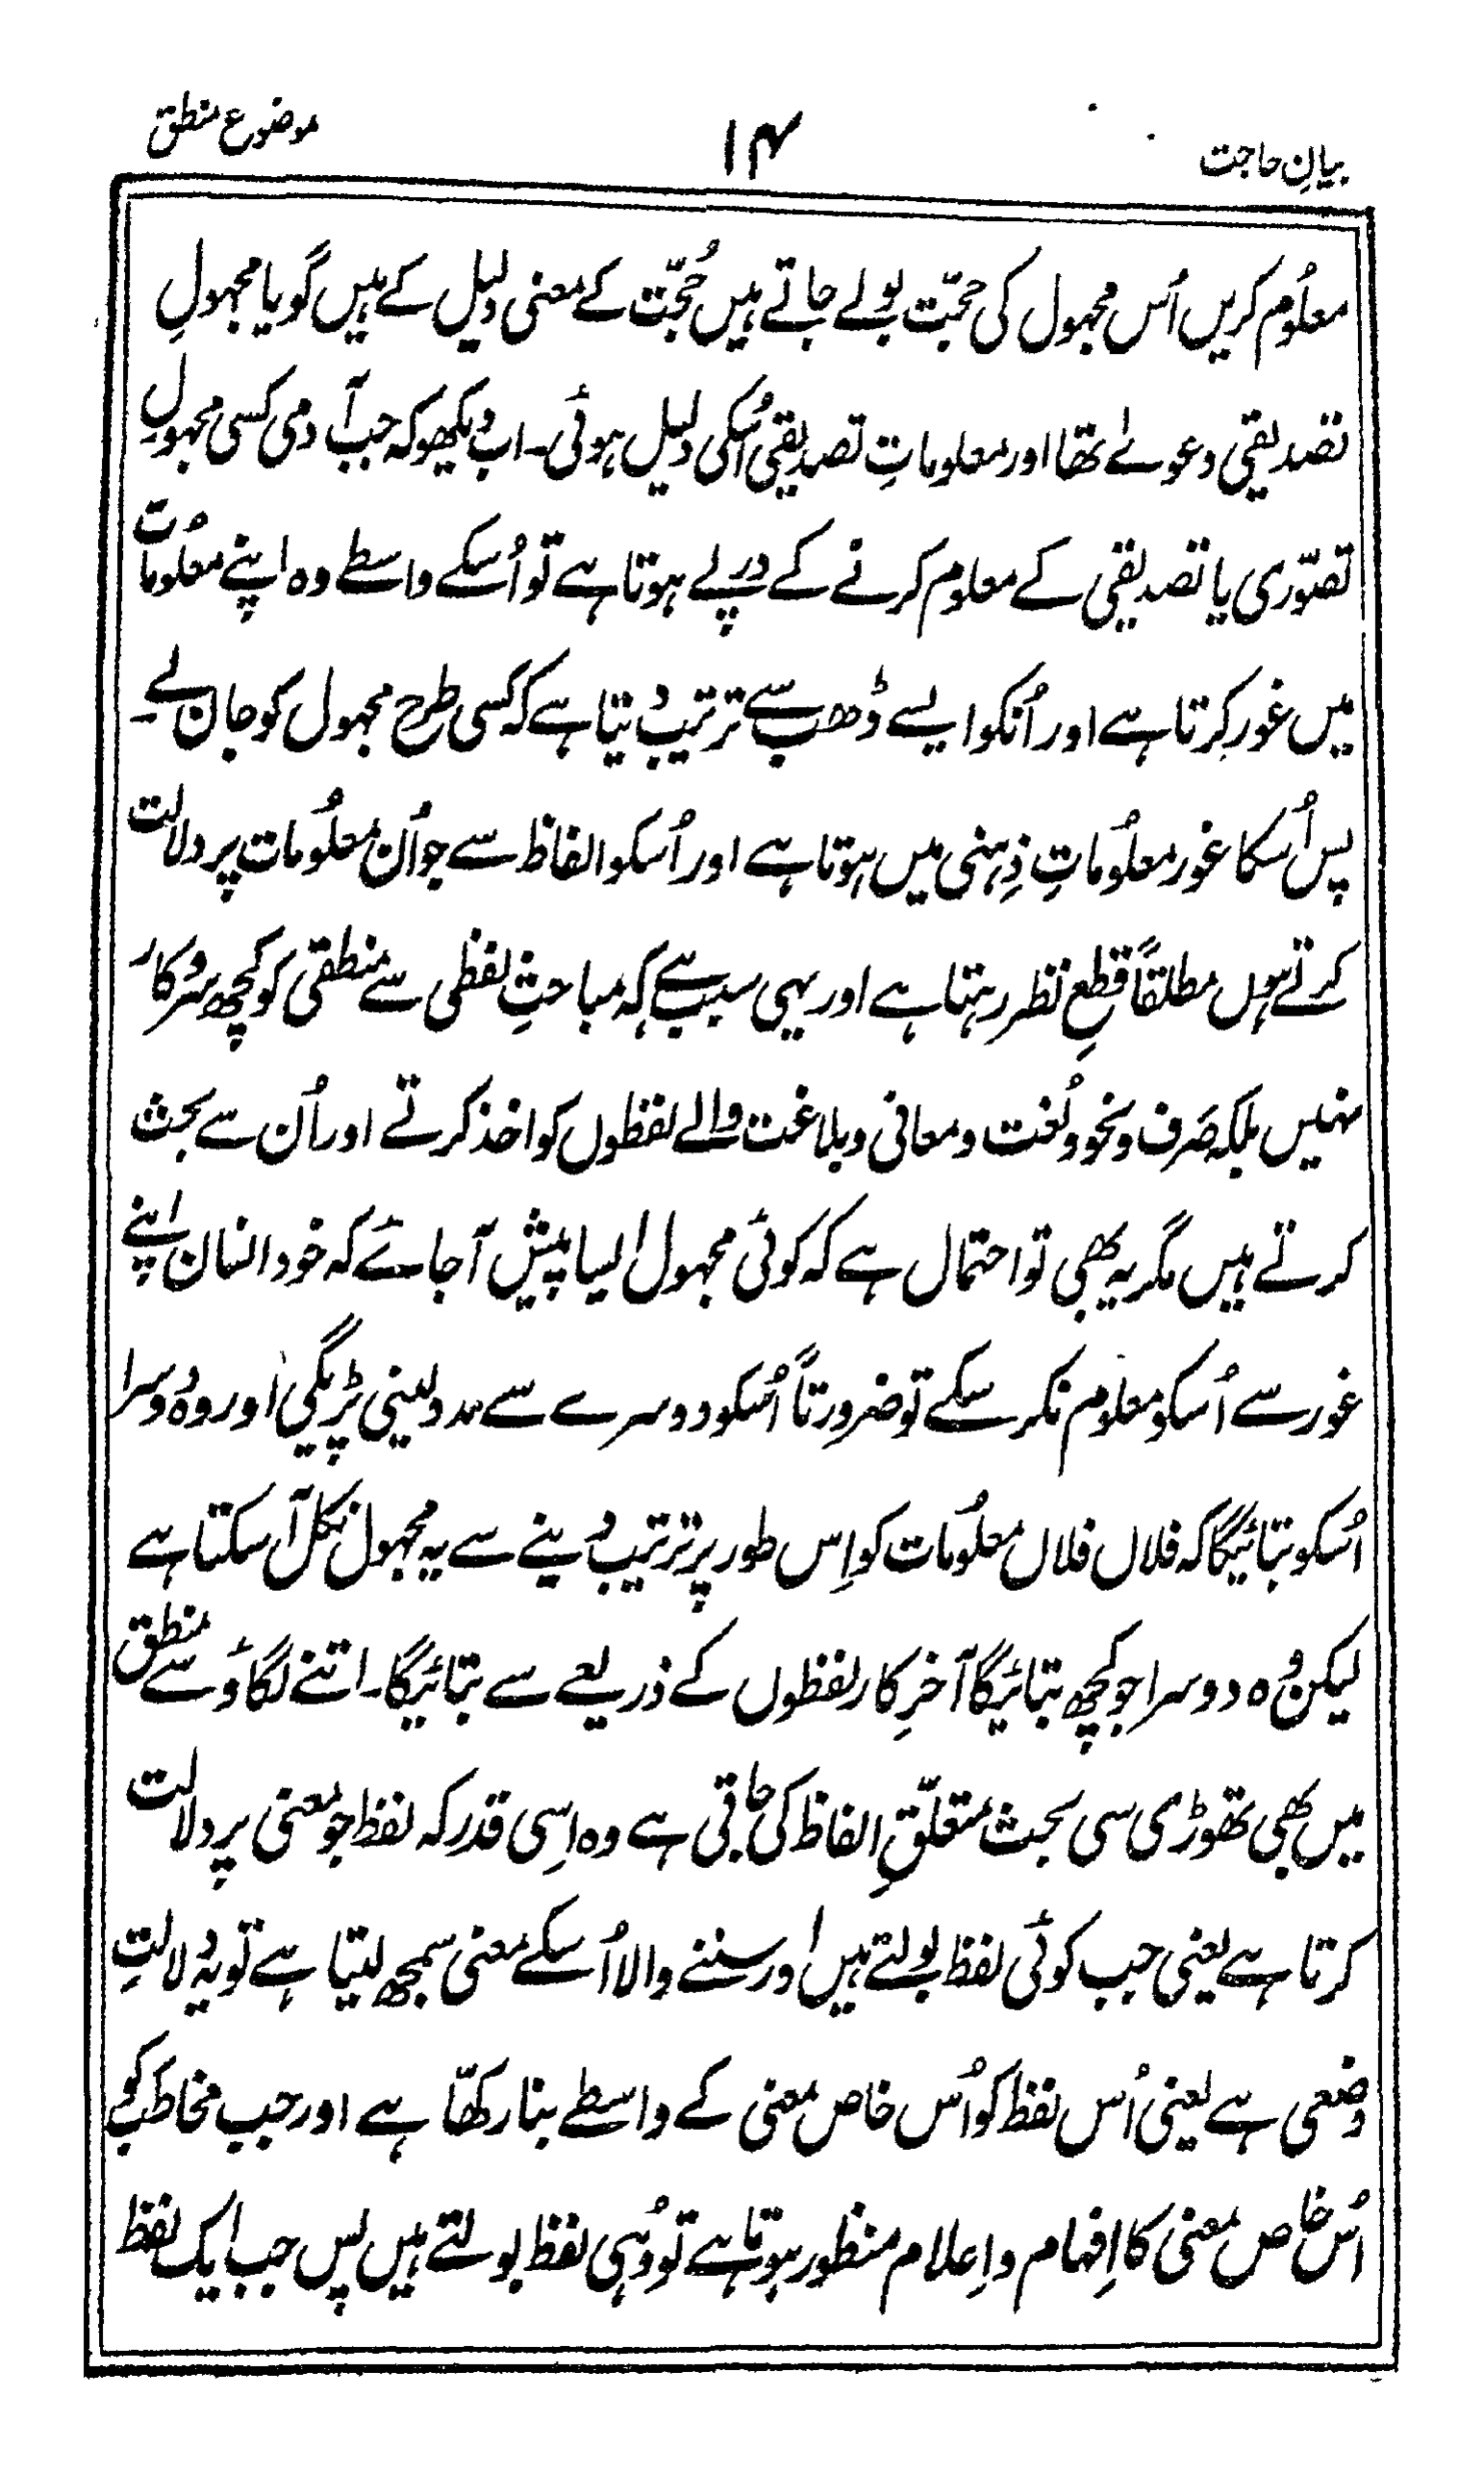 بیانِ حاجت ۱۴ موضوع منطق
معلُوم کریں اُس مجہول کی حجّت بولے جاتے ہیں حُجّت کے معنی دلیل کے ہیں گویا مجہولِ
تصدیقی دعوےٰ تھا اور معلوماتِ تصدیقی اُسکی دلیل ہوئی۔ اب دیکھو کہ جب آدمی کسی مجہولِ
تصوّری یا تصدیقی کے معلوم کرنے کے درپے ہوتا ہے تو اُسکے واسطے وہ اپنے معلُومات
میں غور کرتا ہے اور اُنکو ایسے ڈھب سے ترتیب دیتا ہے کہ کسی طرح مجہول کو جان لے۔
پس اُسکا غور معلُوماتِ ذِہنی میں ہوتا ہے اور اُسکو الفاظ سے جو اُن معلُومات پر دلالت
کرتے ہوں مطلقاً قطعِ نظر رہتا ہے اور یہی سبب ہے کہ مباحثِ لفظی سے منطقی کو کچھ سروکار
نہیں بلکہ صَرف و نحو و لُغت و معانی و بلاغت والے لفظوں کو اخذ کرتے اور اُن سے بحث
کرتے ہیں مگر یہ بھی تو احتمال ہے کہ کوئی مجہول ایسا پیش آ جائے کہ خود انسان اپنے
غور سے اُسکو معلوم نکر سکے تو ضرورتاً اُسکو دوسرے سے مدد لینی پڑیگی اور وہ دُوسرا
اُسکو بتائیگا کہ فلاں فلاں معلُومات کو اِس طور پر ترتیب دینے سے یہ مجہول نکل آ سکتا ہے
لیکن وُہ دوسرا جو کچھ بتائیگا آخرِ کار لفظوں کے ذریعے سے بتائیگا۔ اتنے لگاؤ سے منطق
میں بھی تھوڑی سی بحث متعلّقِ الفاظ کی جاتی ہے وہ اِسی قدر کہ لفظ جو معنی پر دلالت
کرتا ہے یعنی جب کوئی لفظ بولتے ہیں اور سننے والا اُسکے معنی سمجھ لیتا ہے تو یہ دلالتِ
وضعی ہے یعنی اُس لفظ کو اُس خاص معنی کے واسطے بنا رکھّا ہے اور جب مخاطب کو
اُس خاص معنی کا اِفہام و اِعلام منظور ہوتا ہے تو وُہی لفظ بولتے ہیں پس جب ایک لفظ